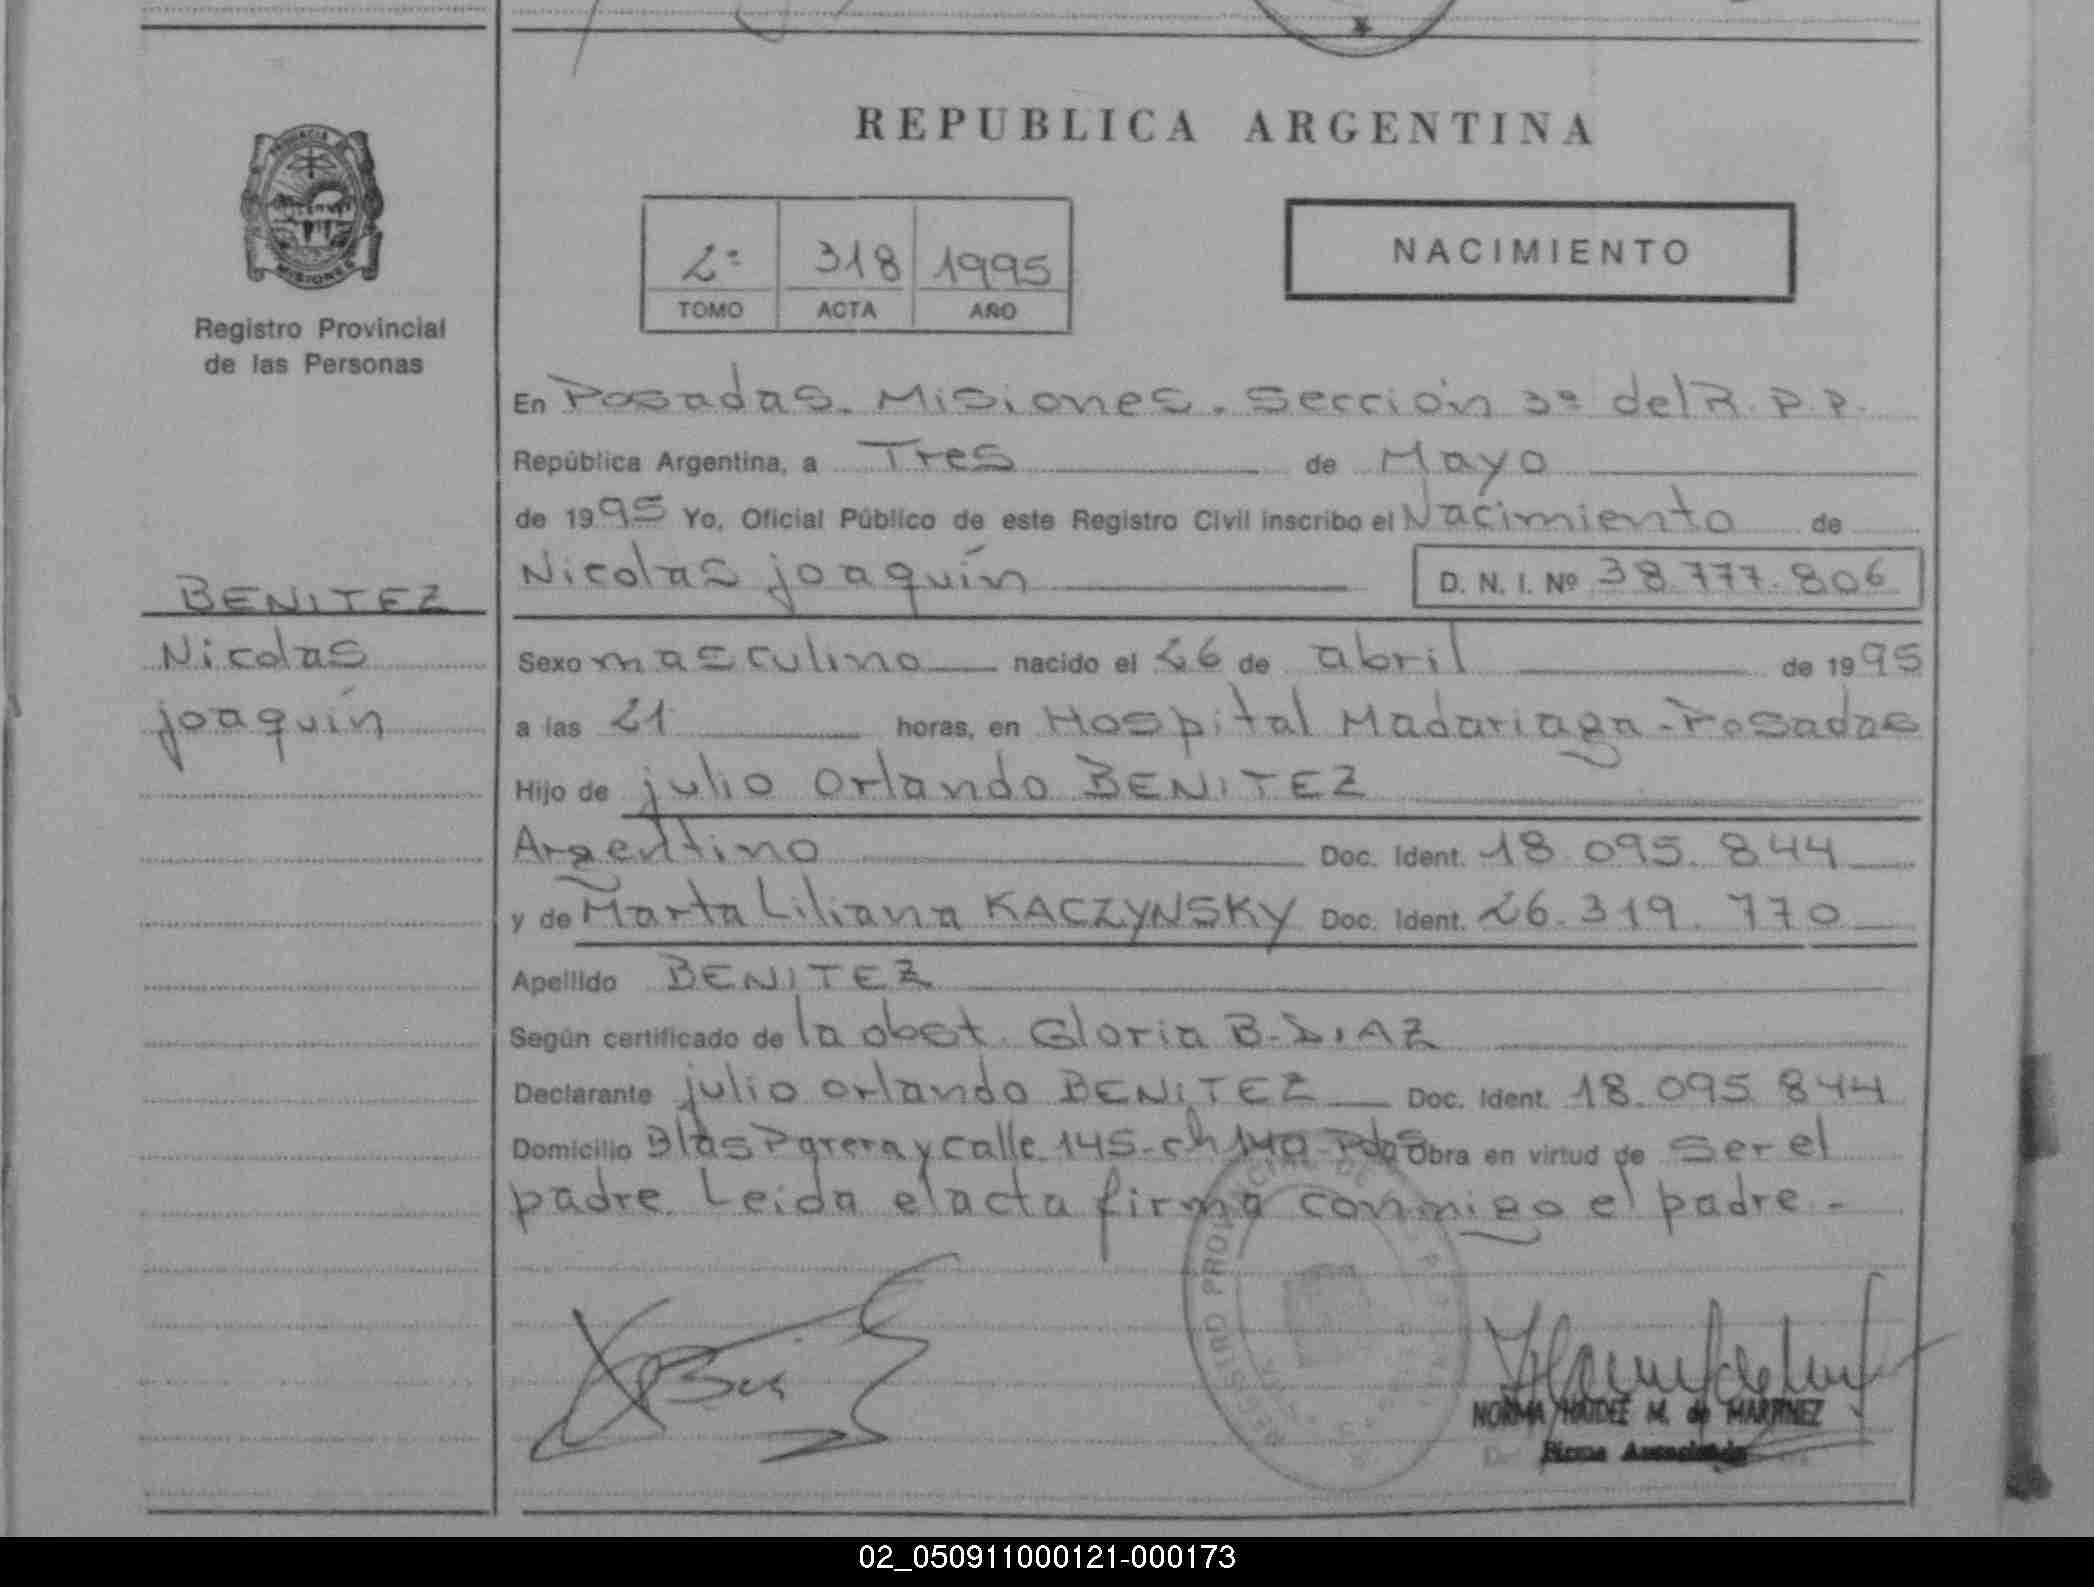 REPUBLICA ARGENTINA
PROVINCIA
MISIONES
Registro Provincial
de las Personas
2º 318 1995
TOMO ACTA AÑO
NACIMIENTO
En Posadas. Misiones. Sección 3º del R. P. P.
República Argentina, a Tres de Mayo
de 1995 Yo, Oficial Público de este Registro Civil inscribo el Nacimiento de
Nicolas joaquín D. N. I. Nº 38.777.806
BENITEZ
Nicolas
joaquín
Sexo masculino nacido el 26 de abril de 1995
a las 21 horas, en Hospital Madariaga - Posadas
Hijo de julio Orlando BENITEZ
Argentino Doc. Ident. 18.095.844
y de Marta Liliana KACZYNSKY Doc. Ident. 26.319.770
Apellido BENITEZ
Según certificado de la obst. Gloria B. DIAZ
Declarante julio orlando BENITEZ Doc. Ident. 18.095.844
Domicilio Blas Parera y calle 145 - ch 140 - Pdas Obra en virtud de ser el
padre. Leida el acta firma conmigo el padre. -
REGISTRO PROVINCIAL DE
NORMA HAIDEE M. de MARTINEZ
02_050911000121-000173